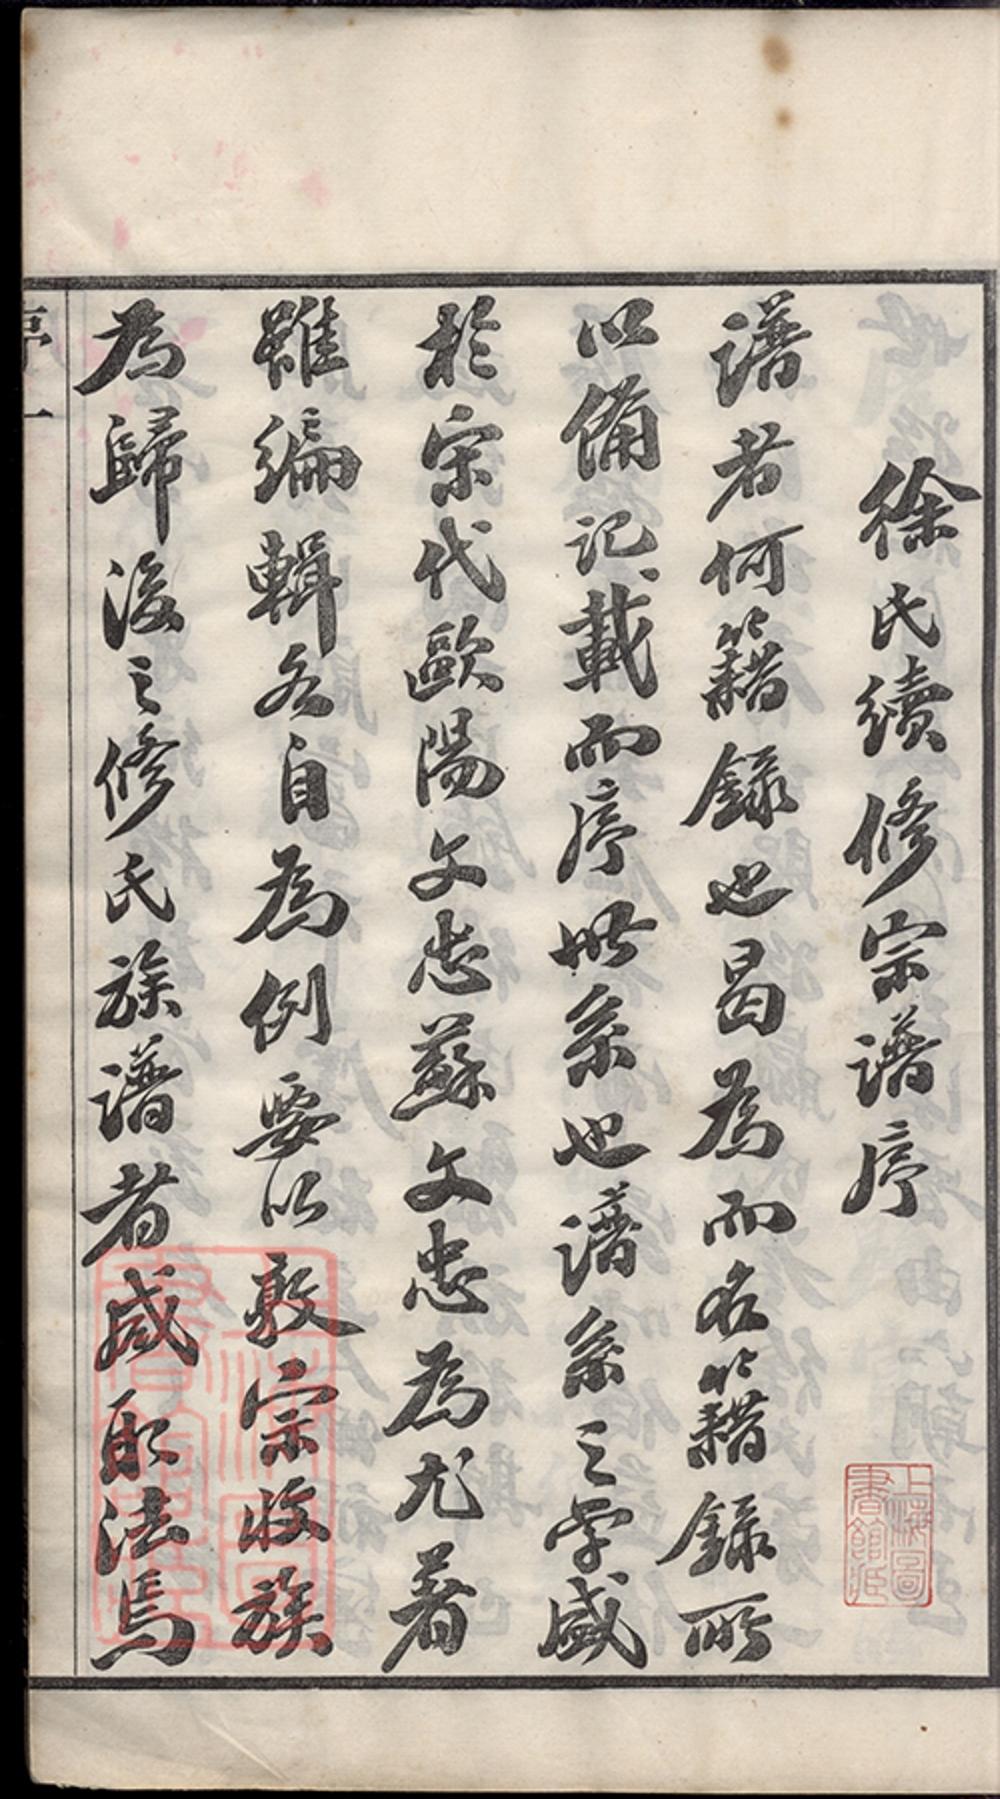 徐氏續修宗譜序
譜者何籍錄也曷為而名籍錄所
以備記載而序世系也譜系之学盛
於宗代歐陽文忠蘇文忠為尤著
雖編輯各自為例要以敦宗收族
為歸後之修氏族譜者咸取法焉
序一
上海圖書館藏